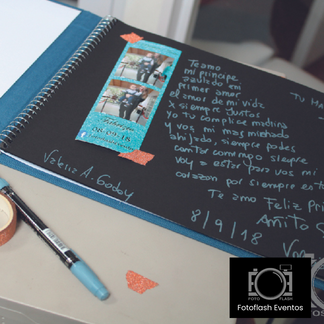 Te amo
mi príncipe
primer amor
el amor de mi vida
x siempre juntos
Yo tu complice madrina
y vos mi mas mimado
ahijado, siempre podes
contar conmigo siempre
voy a estar para vos mi
corazon por siempre
Te amo Feliz
Añito
8/9/18
Tu
Valeria A. Godoy
08·09·18
FOTO FLASH
Fotoflash Eventos